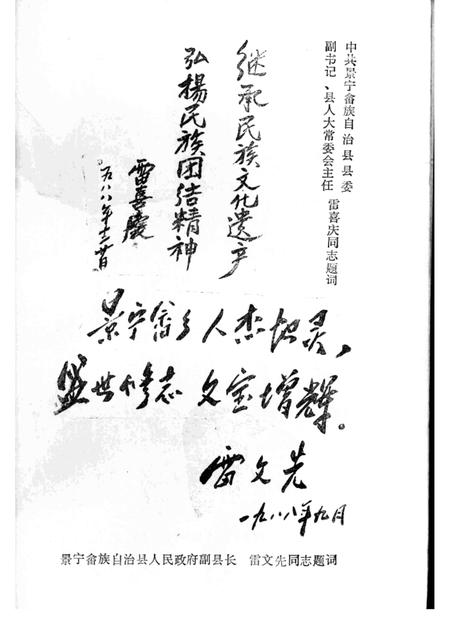 中共景宁畲族自治县县委
副书记、县人大常委会主任 雷喜庆同志题词
继承民族文化遗产
弘揚民族团结精神
雷喜慶
一九八八年十二月廿日
景宁畲乡人杰地灵、
盛世修志 文宝增輝。
雷文先
一九八八年九月
景宁畲族自治县人民政府副县长 雷文先同志题词